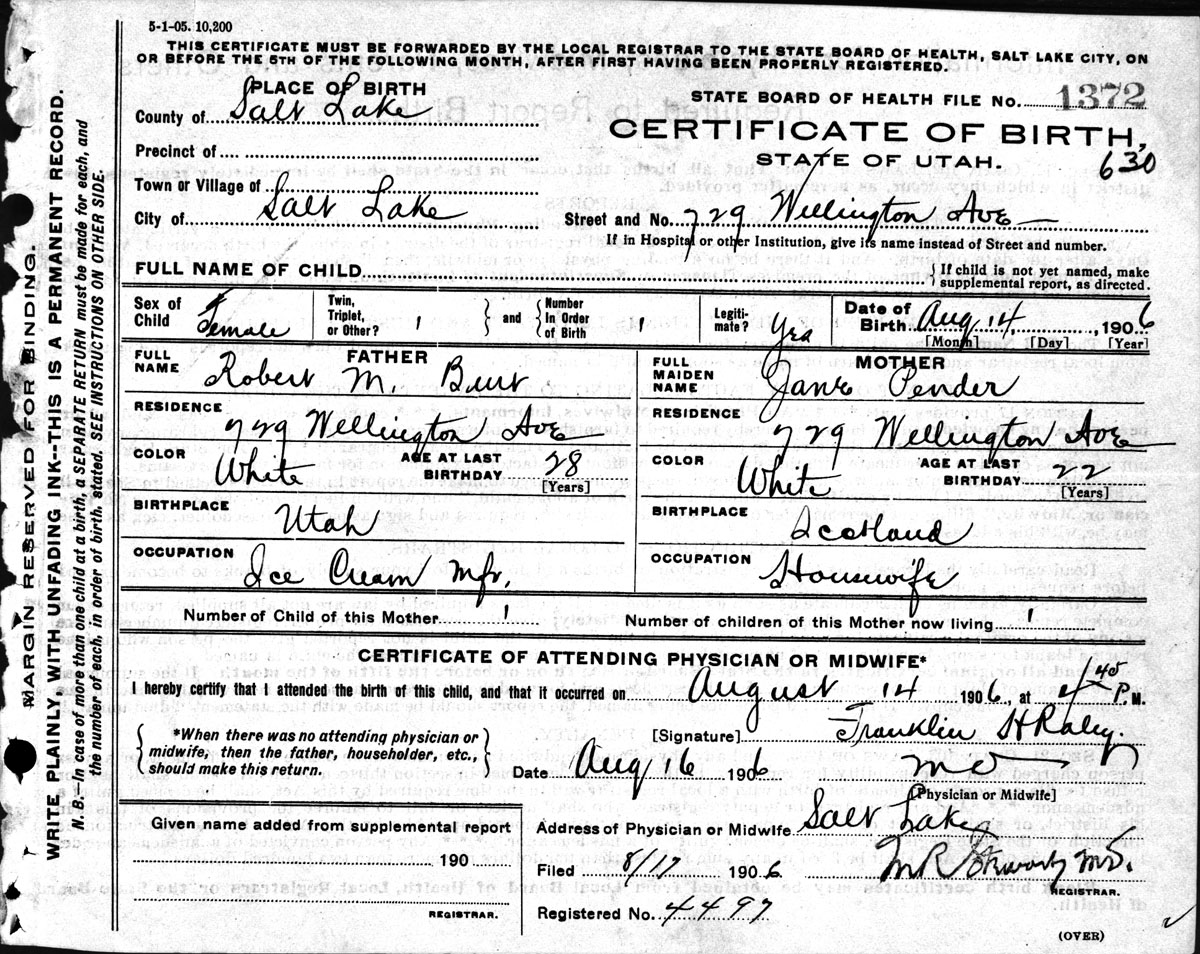 5-1-05. 10,200
THIS CERTIFICATE MUST BE FORWARDED BY THE LOCAL REGISTRAR TO THE STATE BOARD OF HEALTH, SALT LAKE CITY, ON
OR BEFORE THE 5TH OF THE FOLLOWING MONTH, AFTER FIRST HAVING BEEN PROPERLY REGISTERED.
MARGIN RESERVED FOR BINDING.
WRITE PLAINLY WITH UNFADING INK--THIS IS A PERMANENT RECORD.
N. B.--In case of more than one child at a birth, a SEPARATE RETURN must be made for each, and
the number of each, in order of birth, stated. SEE INSTRUCTIONS ON OTHER SIDE.
PLACE OF BIRTH
County of Salt Lake
Precinct of
Town or Village of
City of Salt Lake
STATE BOARD OF HEALTH FILE No. 1372
CERTIFICATE OF BIRTH,
STATE OF UTAH.
630
Street and No. 729 Wellington Ave
If in Hospital or other Institution, give its name instead of Street and number.
FULL NAME OF CHILD
If child is not yet named, make
supplemental report, as directed.
Sex of Child Female
Twin, Triplet, or Other? 1
and
Number In Order of Birth 1
Legitimate? Yes
Date of Birth Aug 14, 1906
[Month] [Day] [Year]
FATHER
FULL NAME Robert M. Burt
RESIDENCE
729 Wellington Ave
COLOR White
AGE AT LAST BIRTHDAY 28
[Years]
BIRTHPLACE
Utah
OCCUPATION
Ice Cream Mfr.
MOTHER
FULL MAIDEN NAME Jane Pender
RESIDENCE
729 Wellington Ave
COLOR White
AGE AT LAST BIRTHDAY 22
[Years]
BIRTHPLACE
Scotland
OCCUPATION
Housewife
Number of Child of this Mother 1
Number of children of this Mother now living 1
CERTIFICATE OF ATTENDING PHYSICIAN OR MIDWIFE*
I hereby certify that I attended the birth of this child, and that it occurred on August 14 1906, at 4 45 P. M.
*When there was no attending physician or
midwife, then the father, householder, etc.,
should make this return.
[Signature] Franklin H Raley
Date Aug 16 1906
M D
[Physician or Midwife]
Given name added from supplemental report
190
REGISTRAR.
Address of Physician or Midwife Salt Lake
Filed 8/17 1906
M R MD.
REGISTRAR.
Registered No. 4497
(OVER)